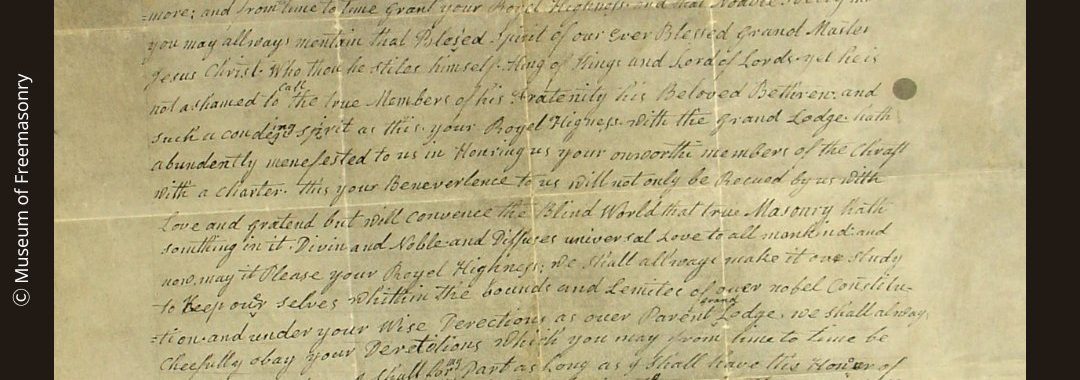 © Museum of Freemasonry
=more; and from time to time grant your Royel Highness: and that Noable
you may allways mentain that Blessed Spirit of our Ever Blessed Grand Master
Jesus Christ. Who thou he stiles himself. King of Kings and Lord of Lords. yet he is
not ashamed to call the true Members of his Fratenity his Beloved Bethren: and
such a conding spirit as this. your Royel Higness. with the grand Lodge. hath
abundently menefested to us in Honring us your onworthi members of the Chraft
with a charter. this your Beneverlence to us will not only be Recued by us with
Love and gratend but will convence the Blind World that true Masonry hath
somthing in it Divin and Noble and Diffuses universal Love to all mankind: and
now may it Please your Royel Highness; we shall allways make it our study
to Keep our selves whithin the bounds and Lemites of ouer nobel Constitu-
=tion and under your Wise Derections as ouer Parent grand Lodge. we shall alway,
Cheefully obay your Deretctions which you may from time to time be
shall for my Part as Long as I shall have this Honour of